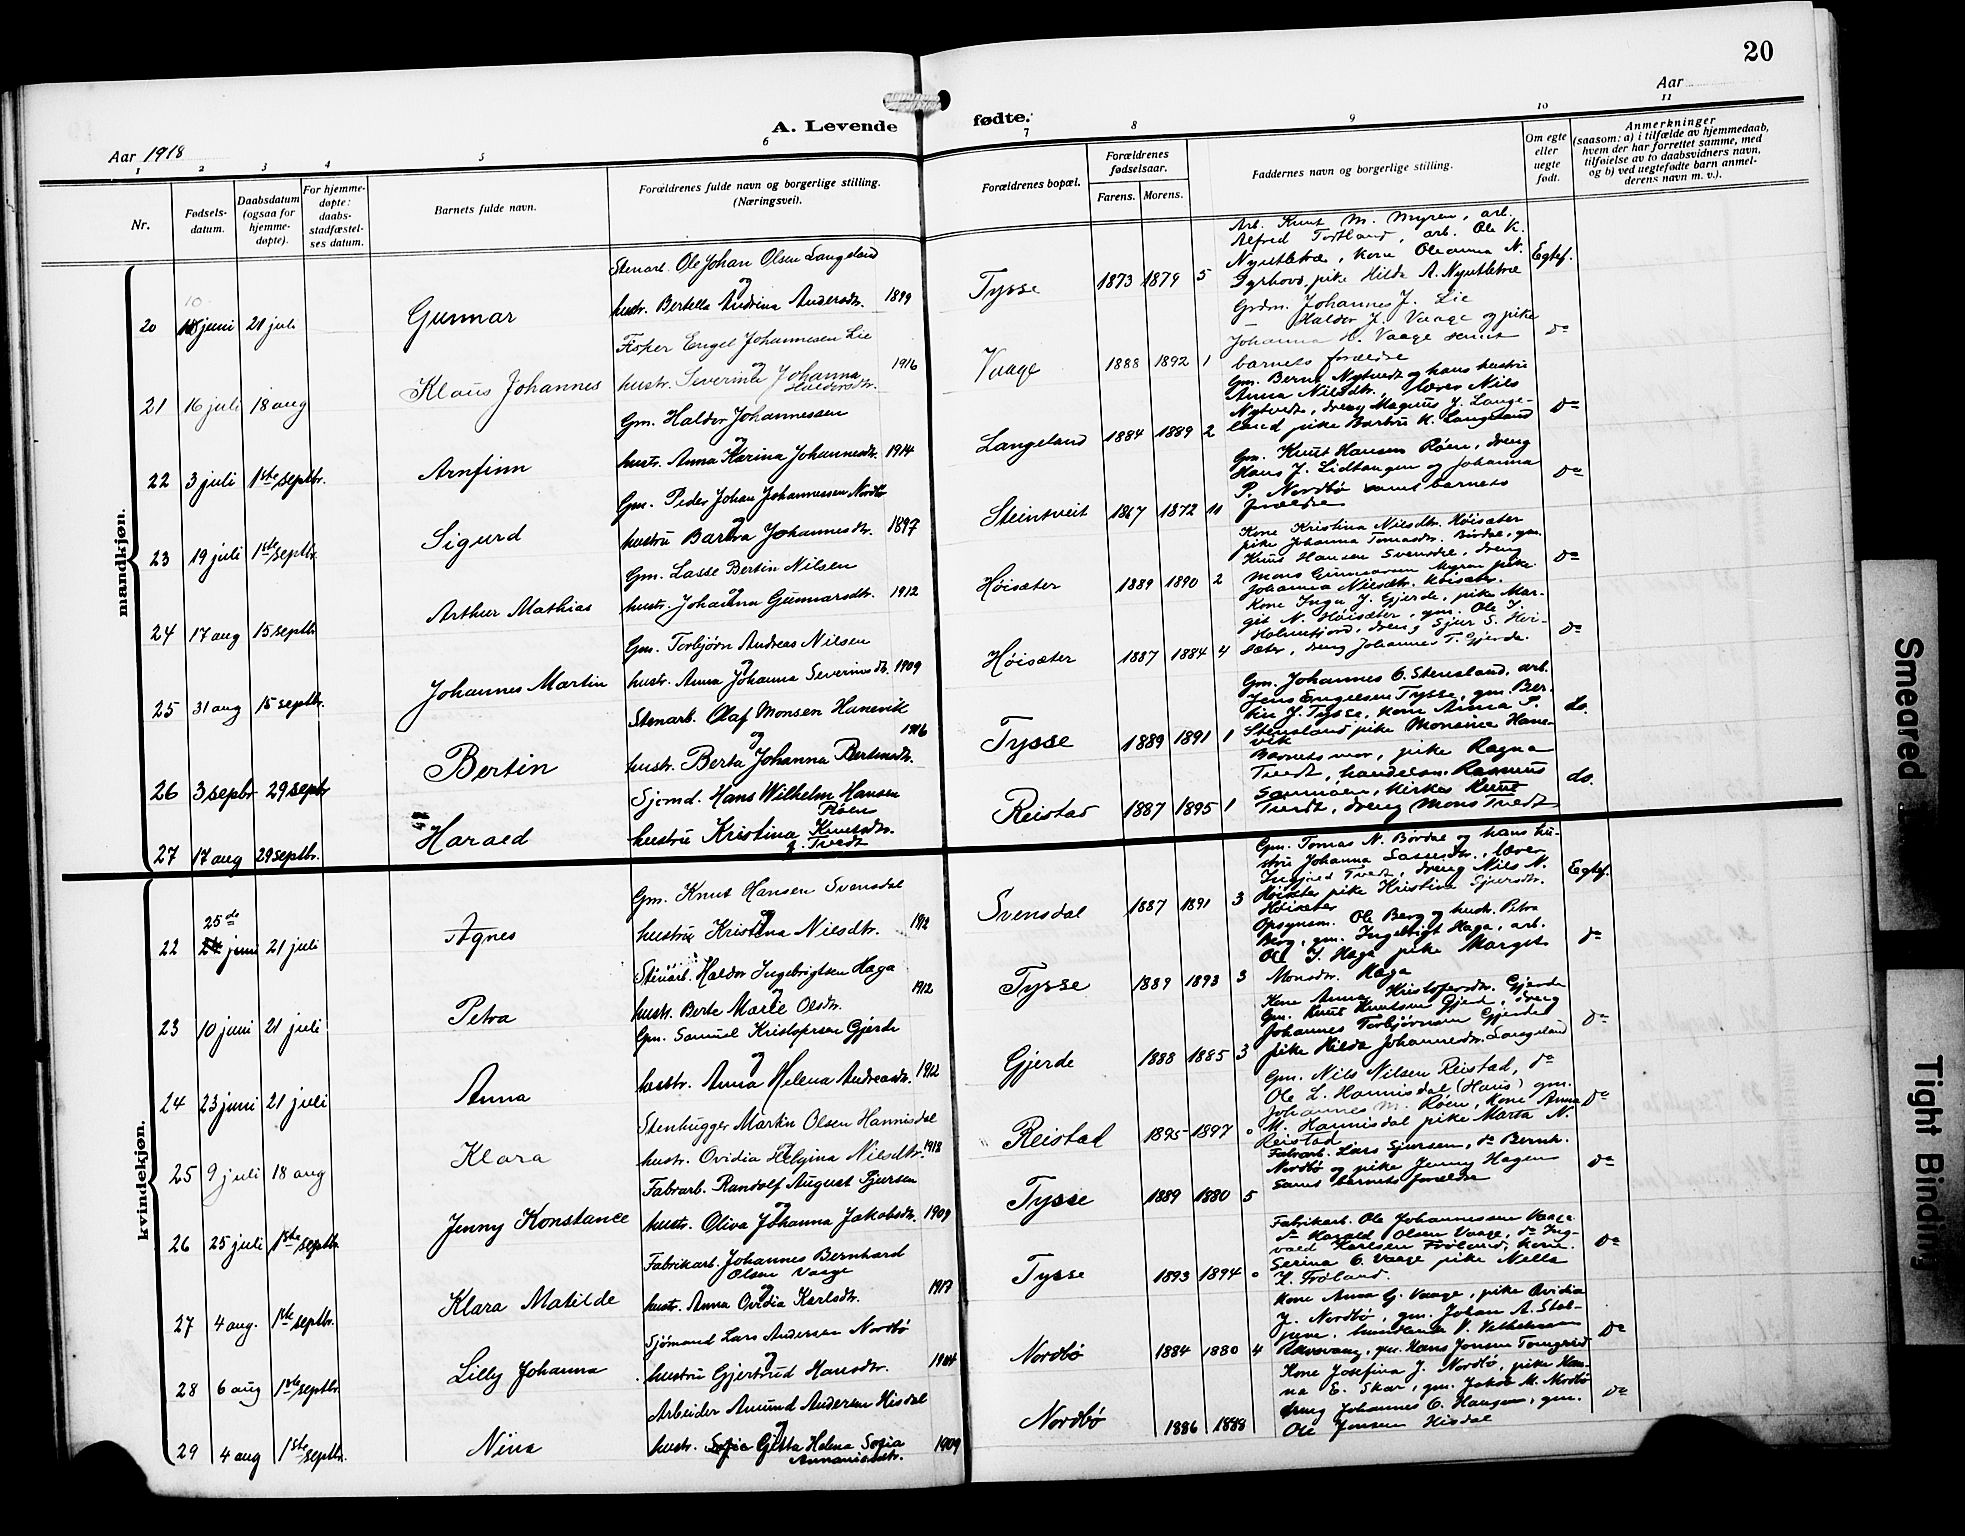 20
Aar
Aar 1918
A. Levende
fødte.
1 2 3 4 5 6 7 8 9 10 11
Nr.
Fødsels-
datum.
Daabsdatum
(ogsaa for
hjemme-
døpte).
For hjemme-
døpte:
daabs-
stadfæstel-
ses datum.
Barnets fulde navn.
Forældrenes fulde navn og borgerlige stilling.
(Næringsvei).
Forældrenes bopæl.
Forældrenes
fødselsaar.
Farens. Morens.
Faddernes navn og borgerlige stilling.
Om egte
eller
uegte
født.
Anmerkninger
(saasom: a) i tilfælde av hjemmedaab,
hvem der har forrettet samme, med
tilføielse av to daabsvidners navn,
og b) ved uegtefødte barn anmel-
derens navn m. v.).
mandkjøn.
20 10 juni 21 juli Gunnar
Stenarb. Ole Johan Olsen Langeland
og
hustr. Bertella Andrina Andersdtr. 1899
Tysse 1873 1879 5
Arb. Knut M. Myren, arb.
Alfred Tortland, arb. Ole K.
Nyutletræ, kone Oleanna N.
Dyrhovd, pike Hilda A. Nyutletræ
Egtef.
21 16 juli 18 aug Klaus Johannes
Fisker Engel Johannesen Lie
og
hustr. Severine Johanna
Haldorsdtr. 1916
Vaage 1888 1892 1
Grdm. Johannes J. Lie
Haldor J. Vaage og pike
Johanna H. Vaage samt
barnets forældre
do
22 3 juli 1ste septbr. Arnfinn
Gm. Haldor Johannessen
og
hustr. Anna Karina Johannesdtr. 1914
Langeland 1884 1889 2
Gm. Berne Nytvedt og hans hustru
Anna Nilsdtr., lærer Nils
Nytvedt, dreng Magnus J. Lange-
land pike Barbru K. Langeland
do
23 19 juli 1ste septbr. Sigurd
Gm. Peder Johan Johannessen Nordbø
og
hustru Barbra Johannesdtr. 1897
Steintveit 1867 1872 11
Gm. Knut Hansen Røen, dreng
Hans J. Lidtangen og Johanna
P. Nordbø samt barnets
forældre
do
24 17 aug 15 septbr Arthur Mathias
Gm. Lasse Bertin Nilsen
og
hustr. Johanna Gunnarsdtr. 1912
Høisæter 1889 1890 2
Kone Kristina Nilsdtr. Høisæter
pike Johanna Tomasdtr. Børdal, gm.
Knut Hansen Svensdal, dreng
Mons Gunnarsen Myren pike
Johanna Nilsdtr. Høisæter.
do
25 31 aug 15 septbr. Johannes Martin
Gm. Torbjørn Andreas Nilsen
og
hustr. Anna Johanna Severinsdtr. 1909
Høisæter 1887 1884 4
Kone Inga J. Gjerde, pike Mar-
git N. Høisæter, gm. Ole J.
Holmefjord, dreng Sjur S. Høi-
sæter, dreng Johannes T. Gjerde.
do
26 3 septbr 29 septbr Bertin
Stenarb. Olaf Monsen Hanevik
og
hustr. Berta Johanna Bertinsdtr. 1916
Tysse 1889 1891 1
Gm. Johannes O. Stensland, arb.
Jens Engelsen Tysse, gm. Ber-
tin J. Tysse, kone Anna P.
Stensland pike Monsine Hane-
vik
do.
27 17 aug 29 septbr. Harald
Sjømd. Hans Wilhelm Hansen
Røen
hustru Kristina Knutsdtr.
f. Tvedt
Reistad 1887 1895 1
Barnets mor, pike Ragna
Tvedt, handelsm. Rasmus
Samnøen, kirkes. Knut
Tvedt, dreng Mons Tvedt
do.
kvindekjøn.
22 25de juni 21 juli Agnes
Gm. Knut Hansen Svensdal
og
hustru Kristina Nilsdtr. 1912
Svensdal 1887 1891 3
Gm. Tomas N. Børdal og hans hu-
stru Johanna Lassesdtr., lærer
Ingjald Tvedt, dreng Nils N.
Høisæter pike Kristina Sjursdtr.
Høisæter
Egtef.
23 10 juni 21 juli Petra
Stenarb. Haldor Ingebrigtsen Haga
og
hustr. Berte Marie Olsdtr. 1912
Tysse 1889 1893 3
Opsynsm. Ole Berg og hustr. Petra
Berg, gm. Ingebrigt Haga, arb.
Ole J. Haga pike Margit
Monsdtr. Haga
do
24 23 juni 21 juli Anna
Gm. Samuel Kristofersen Gjerde
og
hustr. Anna Helena Andreasdtr. 1912
Gjerde 1888 1885 3
Kone Anna Kristofersdtr. Gjerde
Gm. Knut Knutsen Gjerde, dreng
Johannes Torbjørnsen Gjerde
pike Hilda Johannesdtr. Langeland
do
25 9 juli 18 aug Klara
Stenhugger Martin Olsen Hannisdal
og
hustr. Ovidia Helgina Nilsdtr. 1918
Reistad 1895 1897 0
Gm. Nils Nilsen Reistad, do
Ole L. Hannisdal (Haus) gm.
Johannes M. Røen, kone Anna
M. Hannisdal pike Marta N.
Reistad
do
26 25 juli 1ste septbr Jenny Konstance
Fabrarb. Randolf August Sjursen
og
hustr. Oliva Johanna Jakobsdtr. 1909
Tysse 1889 1880 5
Fabrarb. Lars Sjursen, do Bernh.
Nordbø og pike Jenny Hagen
samt barnets forældre
do
27 4 aug. 1ste septbr. Klara Matilde
Fabrikarb. Johannes Bernhard
Olsen Vaage
og
hustr. Anna Ovidia Karlsdtr. 1917
Tysse 1893 1894 0
Fabrikarb. Ole Johannessen Vaage
do Harald Olsen Vaage, do Ing-
vald Karlsen Frøland, kone
Serina O. Vaage pike Nella
K. Frøland.
do
28 6 aug 1ste septbr Lilly Johanna
Sjømand Lars Andersen Nordbø
og
hustru Gjertrud Hansdtr. 1904
Nordbø 1884 1880 4
Kone Anna G. Vaage, pike Ovidia
J. Nordbø, gm. Johan A. Stol-
Ravnvang, gm. Hans Jonsen
do
29 4 aug 1ste septbr. Nina
Arbeider Amund Andersen Hisdal
og
hustr. Gitta Helena Sofia
Annaniasdtr. 1909
Nordbø 1886 1888
Kone Josefina J. Nordbø, pike Han-
na E. Skar, gm. Jakob M. Nordbø
dreng Johannes O. Haugen, gm.
Ole Jensen Hisdal
do
Smeared
Tight Binding